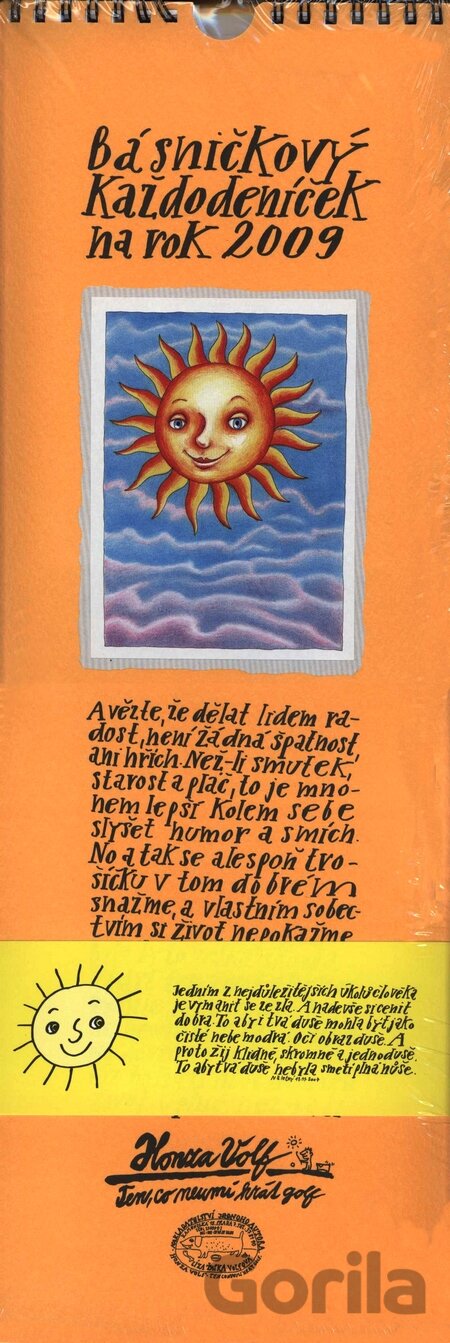 Básničkový
Každodeníček
na rok 2009
A vězte, že dělat lidem ra-
dost, není žádná špatnost,
ani hřích. Než-li smutek,
starost a pláč, to je mno-
hem lepší kolem sebe
slyšet humor a smích.
No a tak se alespoň tro-
šičku v tom dobrém
snažme, a vlastním sobec-
tvím si život nepokažme
Jedním z nejdůležitějších úkolů člověka
je vymanit se ze zla. A nadevše si cenit
dobra. To aby i tvá duše mohla být jako
čisté nebe modrá. Oči obraz duše. A
proto žij klidně, skromně a jednoduše.
To aby tvá duše nebyla smetí plná nůše.
Honza Volf
Ten, co neumí hrát golf
NAKLADATELSTVÍ JEDNOHO AUTORA
Gorila